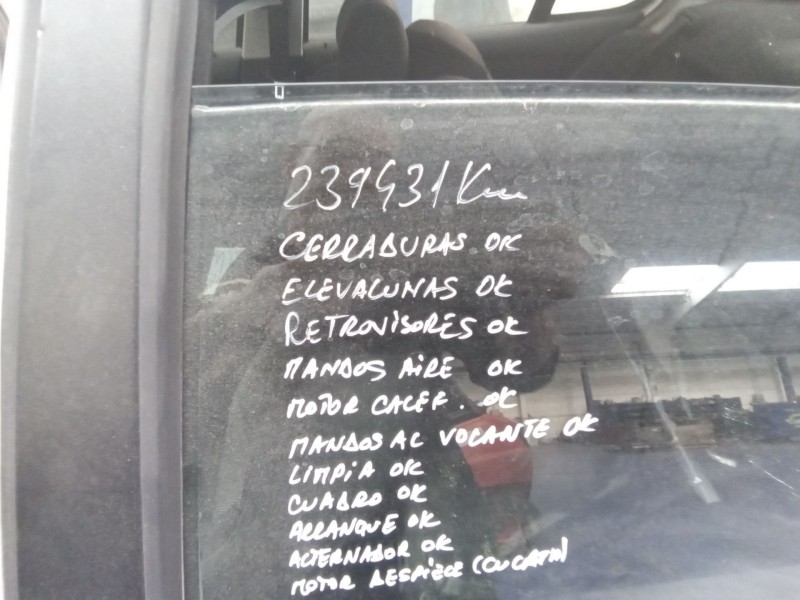 239431 Km
CERRADURAS OK
ELEVALUNAS OK
RETROVISORES OK
MANDOS AIRE OK
MOTOR CALEF. OK
MANDOS AL VOLANTE OK
LIMPIA OK
CUADRO OK
ARRANQUE OK
ALTERNADOR OK
MOTOR DESPIECE